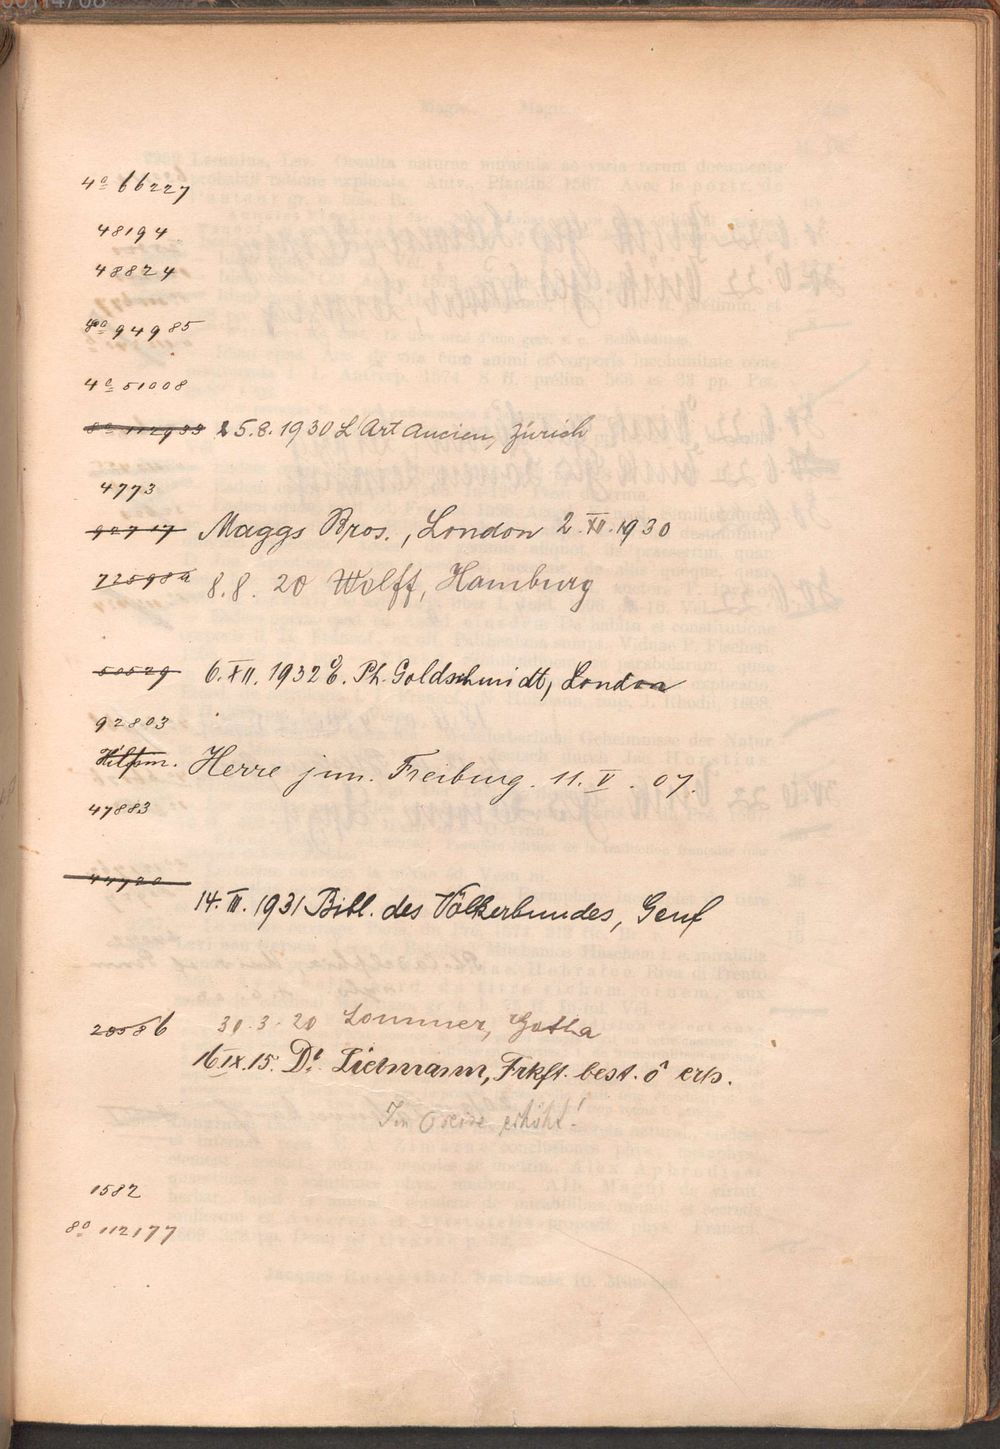 4º 66227
48194
48824
8º 94985
4º 51008
8º 112933 25.8.1930 L'Art Ancien, Zürich
4773
Maggs Bros., London 2.XII.1930
72898a 8.8.20 Wolff, Hamburg
50529 6.XII.1932 E. Ph. Goldschmidt, London
92803
Herre jun. Freiburg. 11. V. 07.
47883
44720
14.III.1931 Bibl. des Völkerbundes, Genf
20586 30.3.20 Lommer, Gotha
16.IX.15. Dr. Lietmann, Frkft. best. ô erh.
Im Preise erhöht!
1582
8º 112177